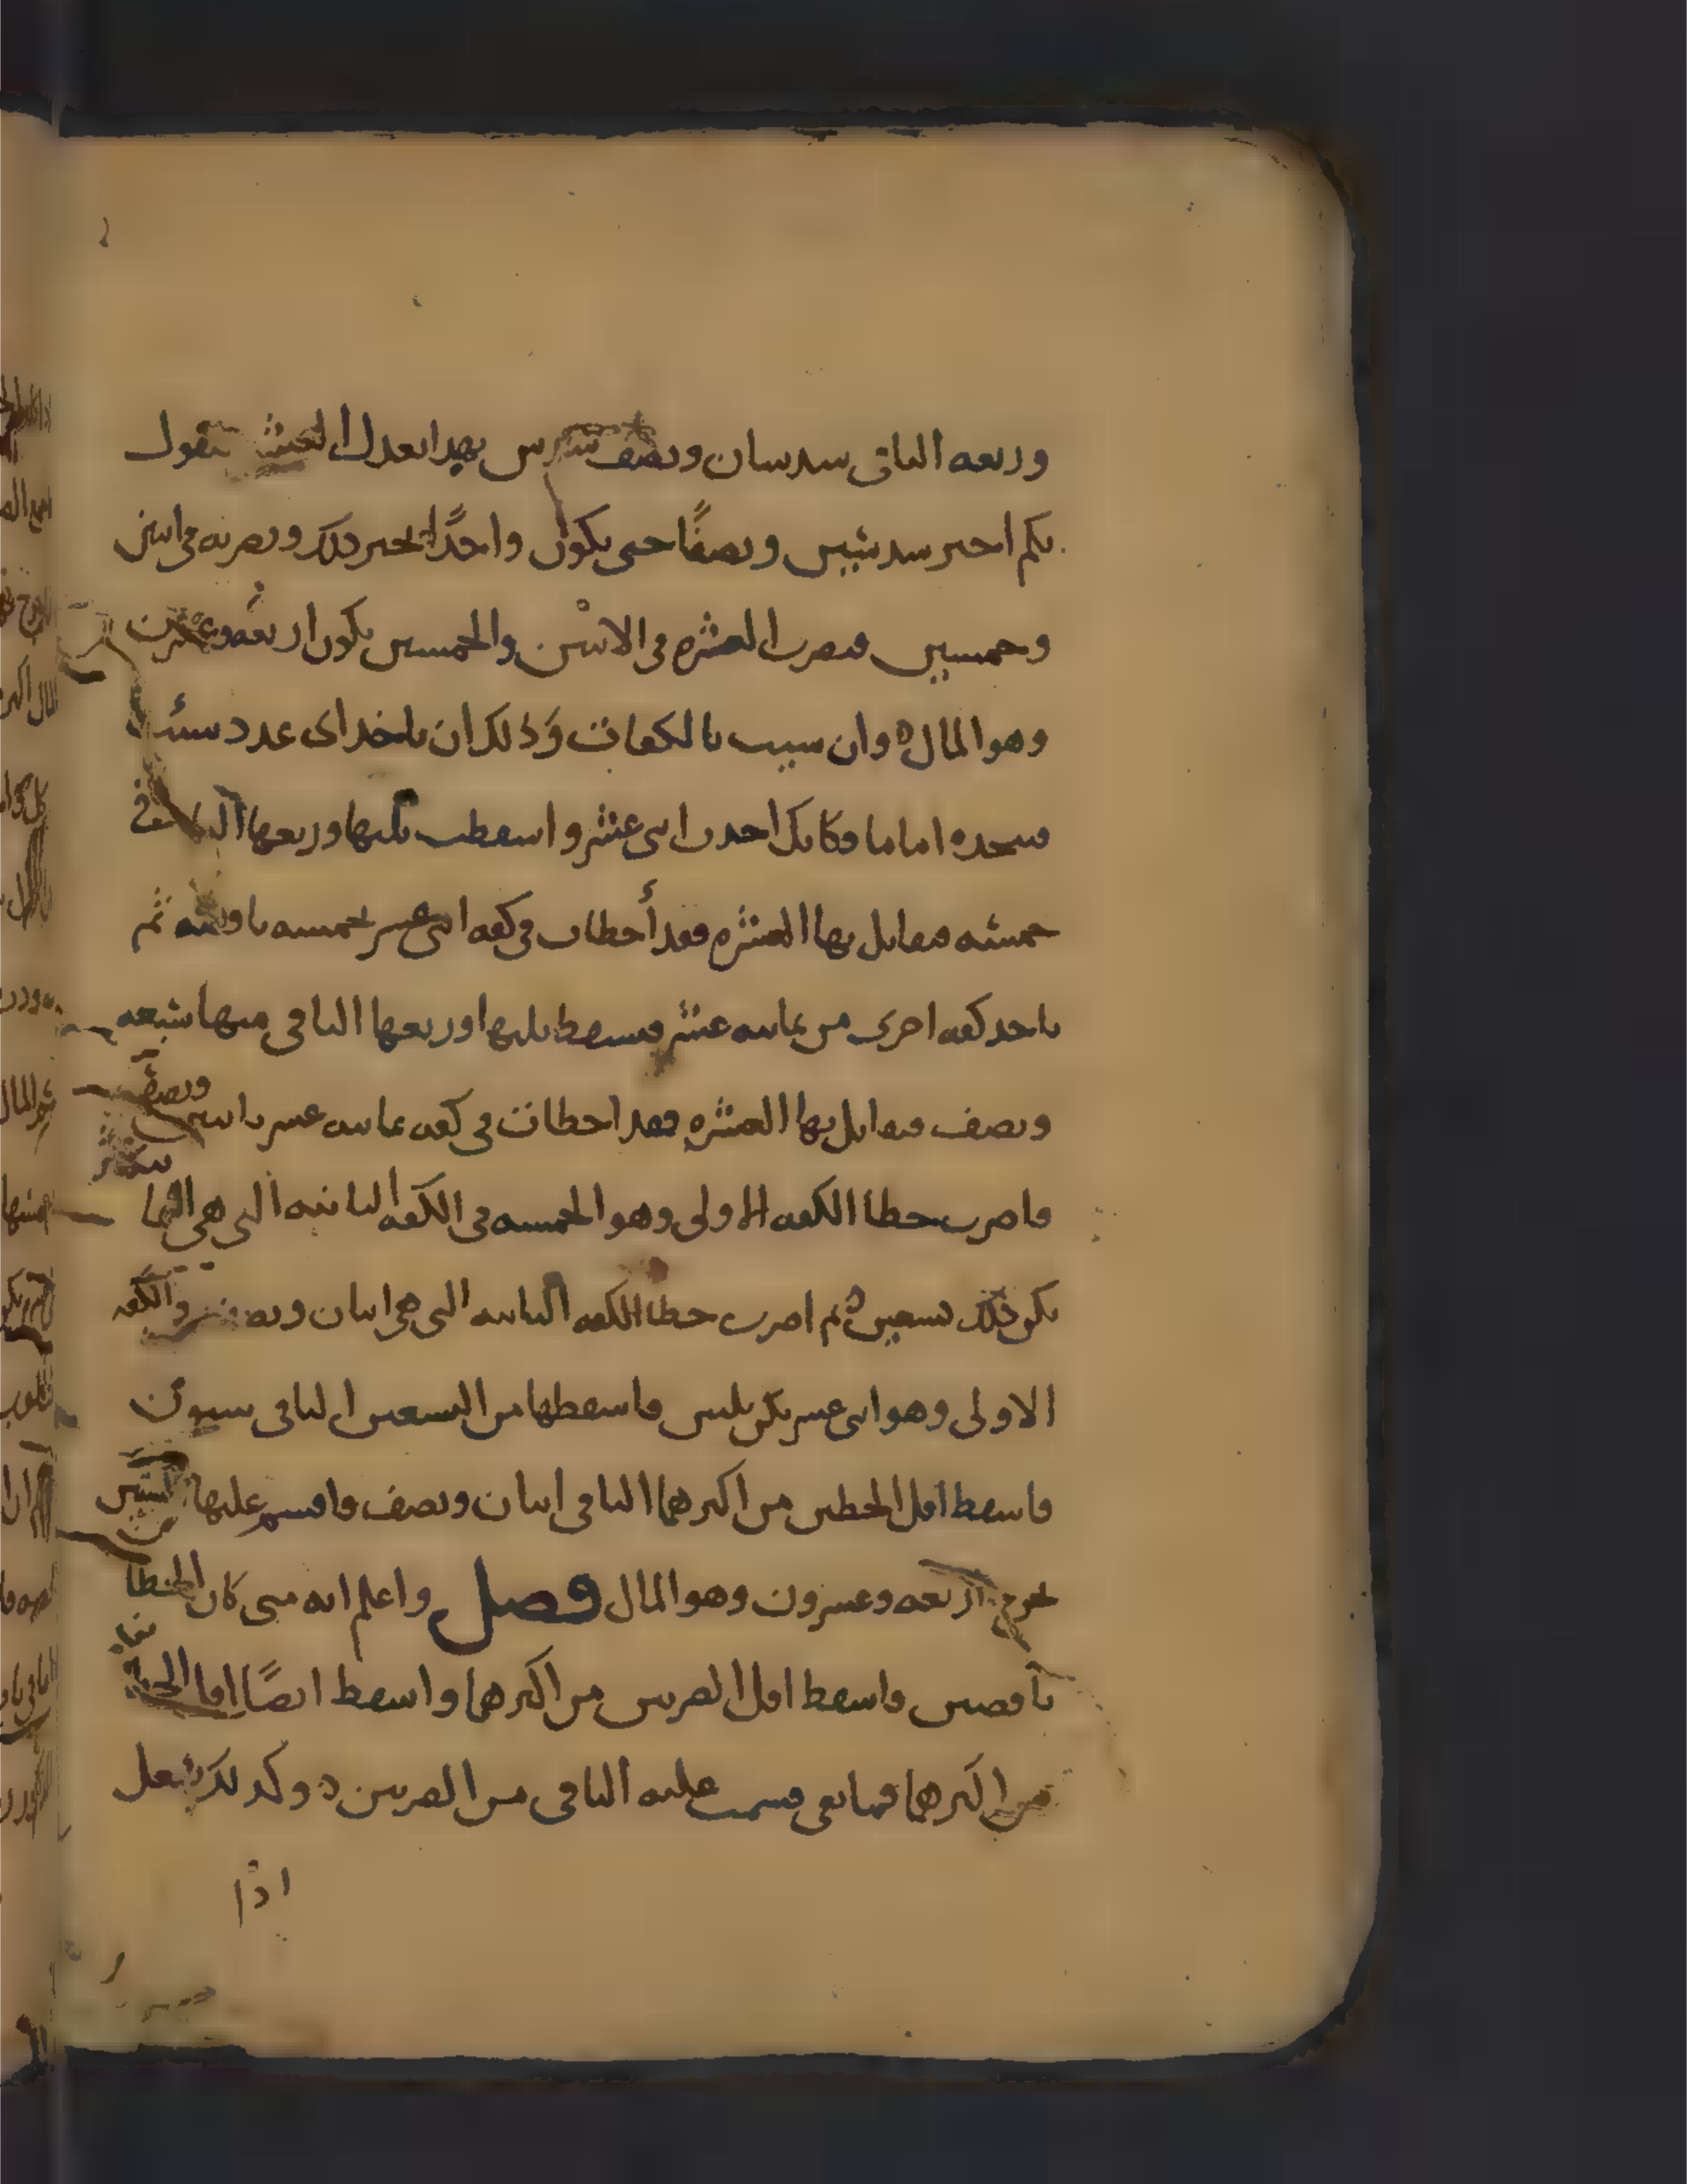 وربعه الباقى سدسان ونصف سدس فهذا يعدل العشره فنقول
بكم اجبر سدسين ونصفًا حتى يكون واحدًا اجبر ذلك وبضربه فى اثنين
وخمسين فتضرب العشره فى الاثنين والخمسين يكون اربعه وعشرين
وهو المال وان شيت بالكفات وَذلك ان تاخذ اى عدد شئت
فتتخذه اماما وكانك اخذت اثنى عشر واسقطت ثلثها وربعها الباقى
خمسه فقابل بها العشره فقد أخطات فى كفه اثنى عشر بخمسه ناقصه ثم
تاخذ كفه اخرى من ثمانيه عشر فتسقط ثلثها وربعها الباقى منها سبعه
ونصف فقابل بها العشره فقد اخطات فى كفه ثمانيه عشر باثنين ونصف
فاضرب خطا الكفه الاولى وهو الخمسه فى الكفه الثانيه التى هى الثمانيه عشر
يكن ذلك تسعين ثم اضرب خطا الكفه الثانيه التى هى اثنان ونصف فى الكفه
الاولى وهو اثنى عشر يكن ثلثين فاسقطها من التسعين الباقى ستون
فاسقط اقل الخطين من اكثرهما الباقى اثنان ونصف فاقسم عليها الستين
يخرج اربعه وعشرون وهو المال فصل واعلم انه متى كان الخطا
ناقصين فاسقط اقل الضربين من اكثرهما واسقط ايضًا اقل الخطاين
من اكثرهما فما بقى قسمت عليه الباقى من الضربين وكذلك تفعل
اذا